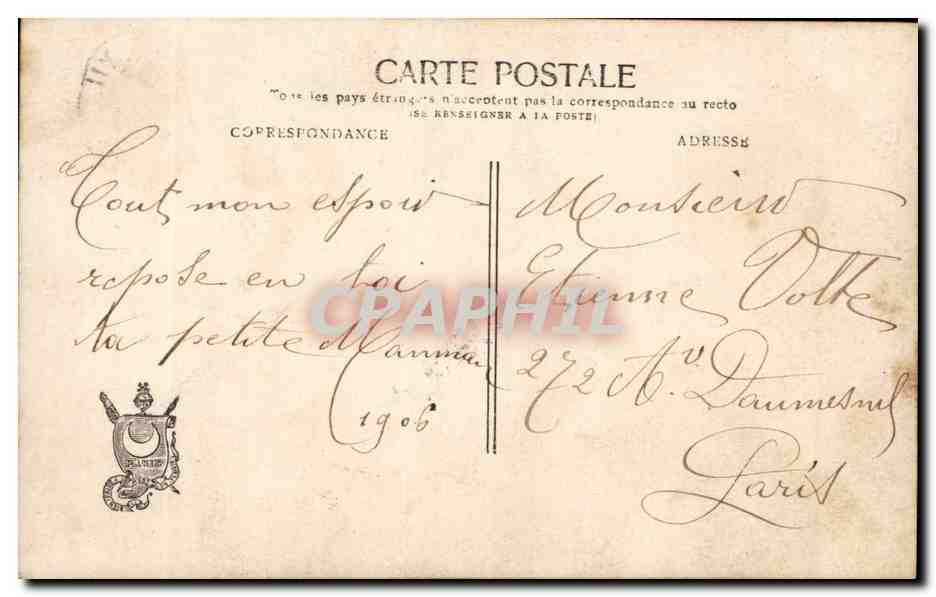 CARTE POSTALE
Tous les pays étrangers n'acceptent pas la correspondance au recto
(SE RENSEIGNER A LA POSTE)
CORRESPONDANCE
ADRESSE
Tout mon espoir
repose en toi
ta petite Manman
1906
Monsieur
Etienne Volte
272 Av Daumesnil
Paris
CPAPHIL